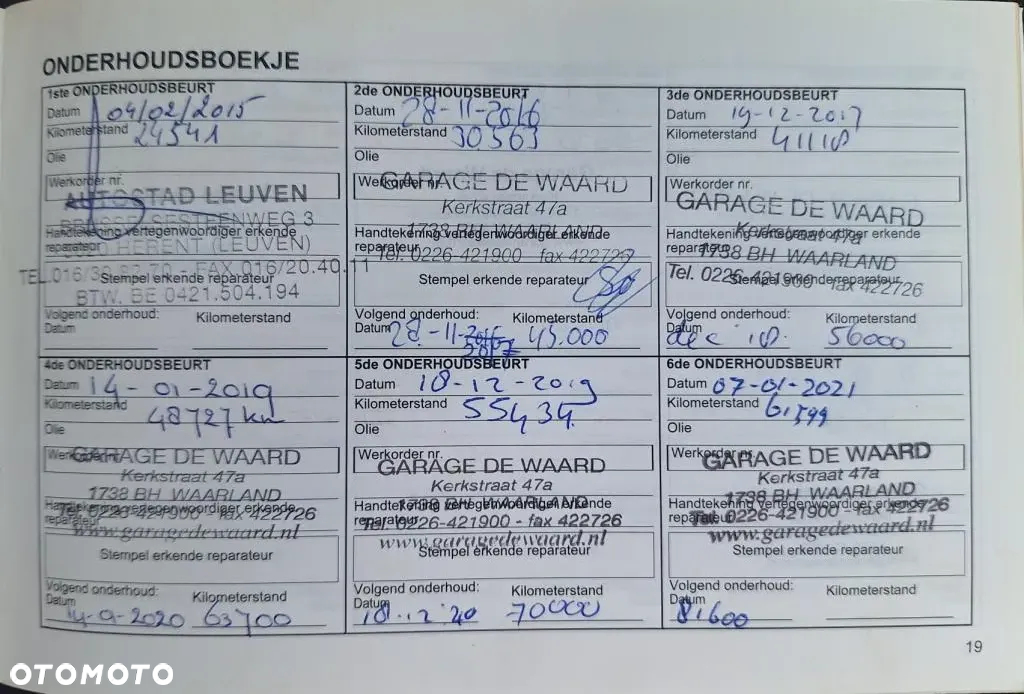 ONDERHOUDSBOEKJE
1ste ONDERHOUDSBEURT
Datum 04/02/2015
Kilometerstand 24541
Olie
Werkorder nr.
AUTOSTAD LEUVEN
BRUSSELSESTEENWEG 3
Handtekening vertegenwoordiger erkende
reparateur
HERENT (LEUVEN)
FAX 016/20.40.11
Stempel erkende reparateur
BTW. BE 0421.504.194
Volgend onderhoud: Kilometerstand
Datum
2de ONDERHOUDSBEURT
Datum 28-11-2016
Kilometerstand 30563
Olie
Werkorder nr.
GARAGE DE WAARD
Kerkstraat 47a
1738 BH WAARLAND
Handtekening vertegenwoordiger erkende
reparateur
Tel. 0226-421900 fax 422726
Stempel erkende reparateur
Volgend onderhoud: Kilometerstand
Datum 28-11- 45.000
3de ONDERHOUDSBEURT
Datum 19-12-2017
Kilometerstand 41118
Olie
Werkorder nr.
GARAGE DE WAARD
Kerkstraat 47a
Handtekening vertegenwoordiger erkende
reparateur
1738 BH WAARLAND
Tel. 0226-421900 fax 422726
Stempel erkende reparateur
Volgend onderhoud: Kilometerstand
Datum dec 18. 56000
4de ONDERHOUDSBEURT
Datum 14-01-2019
Kilometerstand 48727 km
Olie
Werkorder nr.
GARAGE DE WAARD
Kerkstraat 47a
1738 BH WAARLAND
Handtekening vertegenwoordiger erkende
reparateur
Tel. 0226-421900 - fax 422726
www.garagedewaard.nl
Stempel erkende reparateur
Volgend onderhoud: Kilometerstand
Datum 14-9-2020 63700
5de ONDERHOUDSBEURT
Datum 18-12-2019
Kilometerstand 55434
Olie
Werkorder nr.
GARAGE DE WAARD
Kerkstraat 47a
1738 BH WAARLAND
Handtekening vertegenwoordiger erkende
reparateur
Tel. 0226-421900 - fax 422726
www.garagedewaard.nl
Stempel erkende reparateur
Volgend onderhoud: Kilometerstand
Datum 18.12.'20 70000
6de ONDERHOUDSBEURT
Datum 07-01-2021
Kilometerstand 61,599
Olie
Werkorder nr.
GARAGE DE WAARD
Kerkstraat 47a
1738 BH WAARLAND
Handtekening vertegenwoordiger erkende
reparateur
Tel. 0226-421900 - fax 422726
www.garagedewaard.nl
Stempel erkende reparateur
Volgend onderhoud: Kilometerstand
Datum 81600
19
OTOMOTO